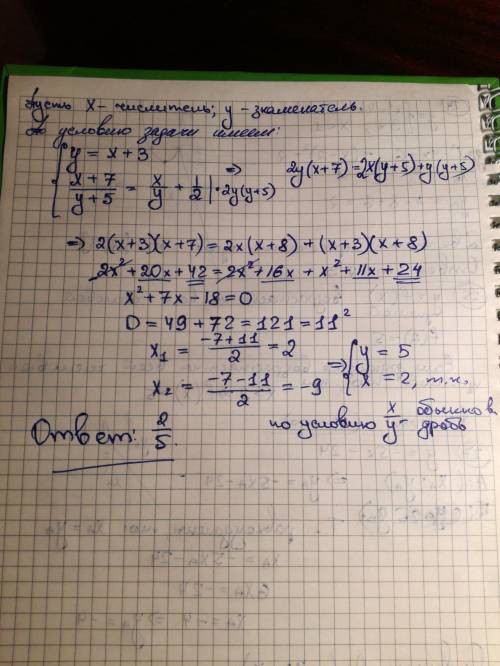 Пусть x - числитель; y - знаменатель.
По условию задачи имеем:
{ y = x + 3
{ (x + 7)/(y + 5) = x/y + 1/2 | · 2y(y+5) ⇒ 2y(x+7) = 2x(y+5) + y(y+5)
⇒ 2(x+3)(x+7) = 2x(x+8) + (x+3)(x+8)
2x² + 20x + 42 = 2x² + 16x + x² + 11x + 24
x² + 7x - 18 = 0
D = 49 + 72 = 121 = 11²
x₁ = (-7+11)/2 = 2
x₂ = (-7-11)/2 = -9 ⇒ { y = 5
{ x = 2, т.к.
по условию x/y - обыкнов. дробь
Ответ: 2/5.